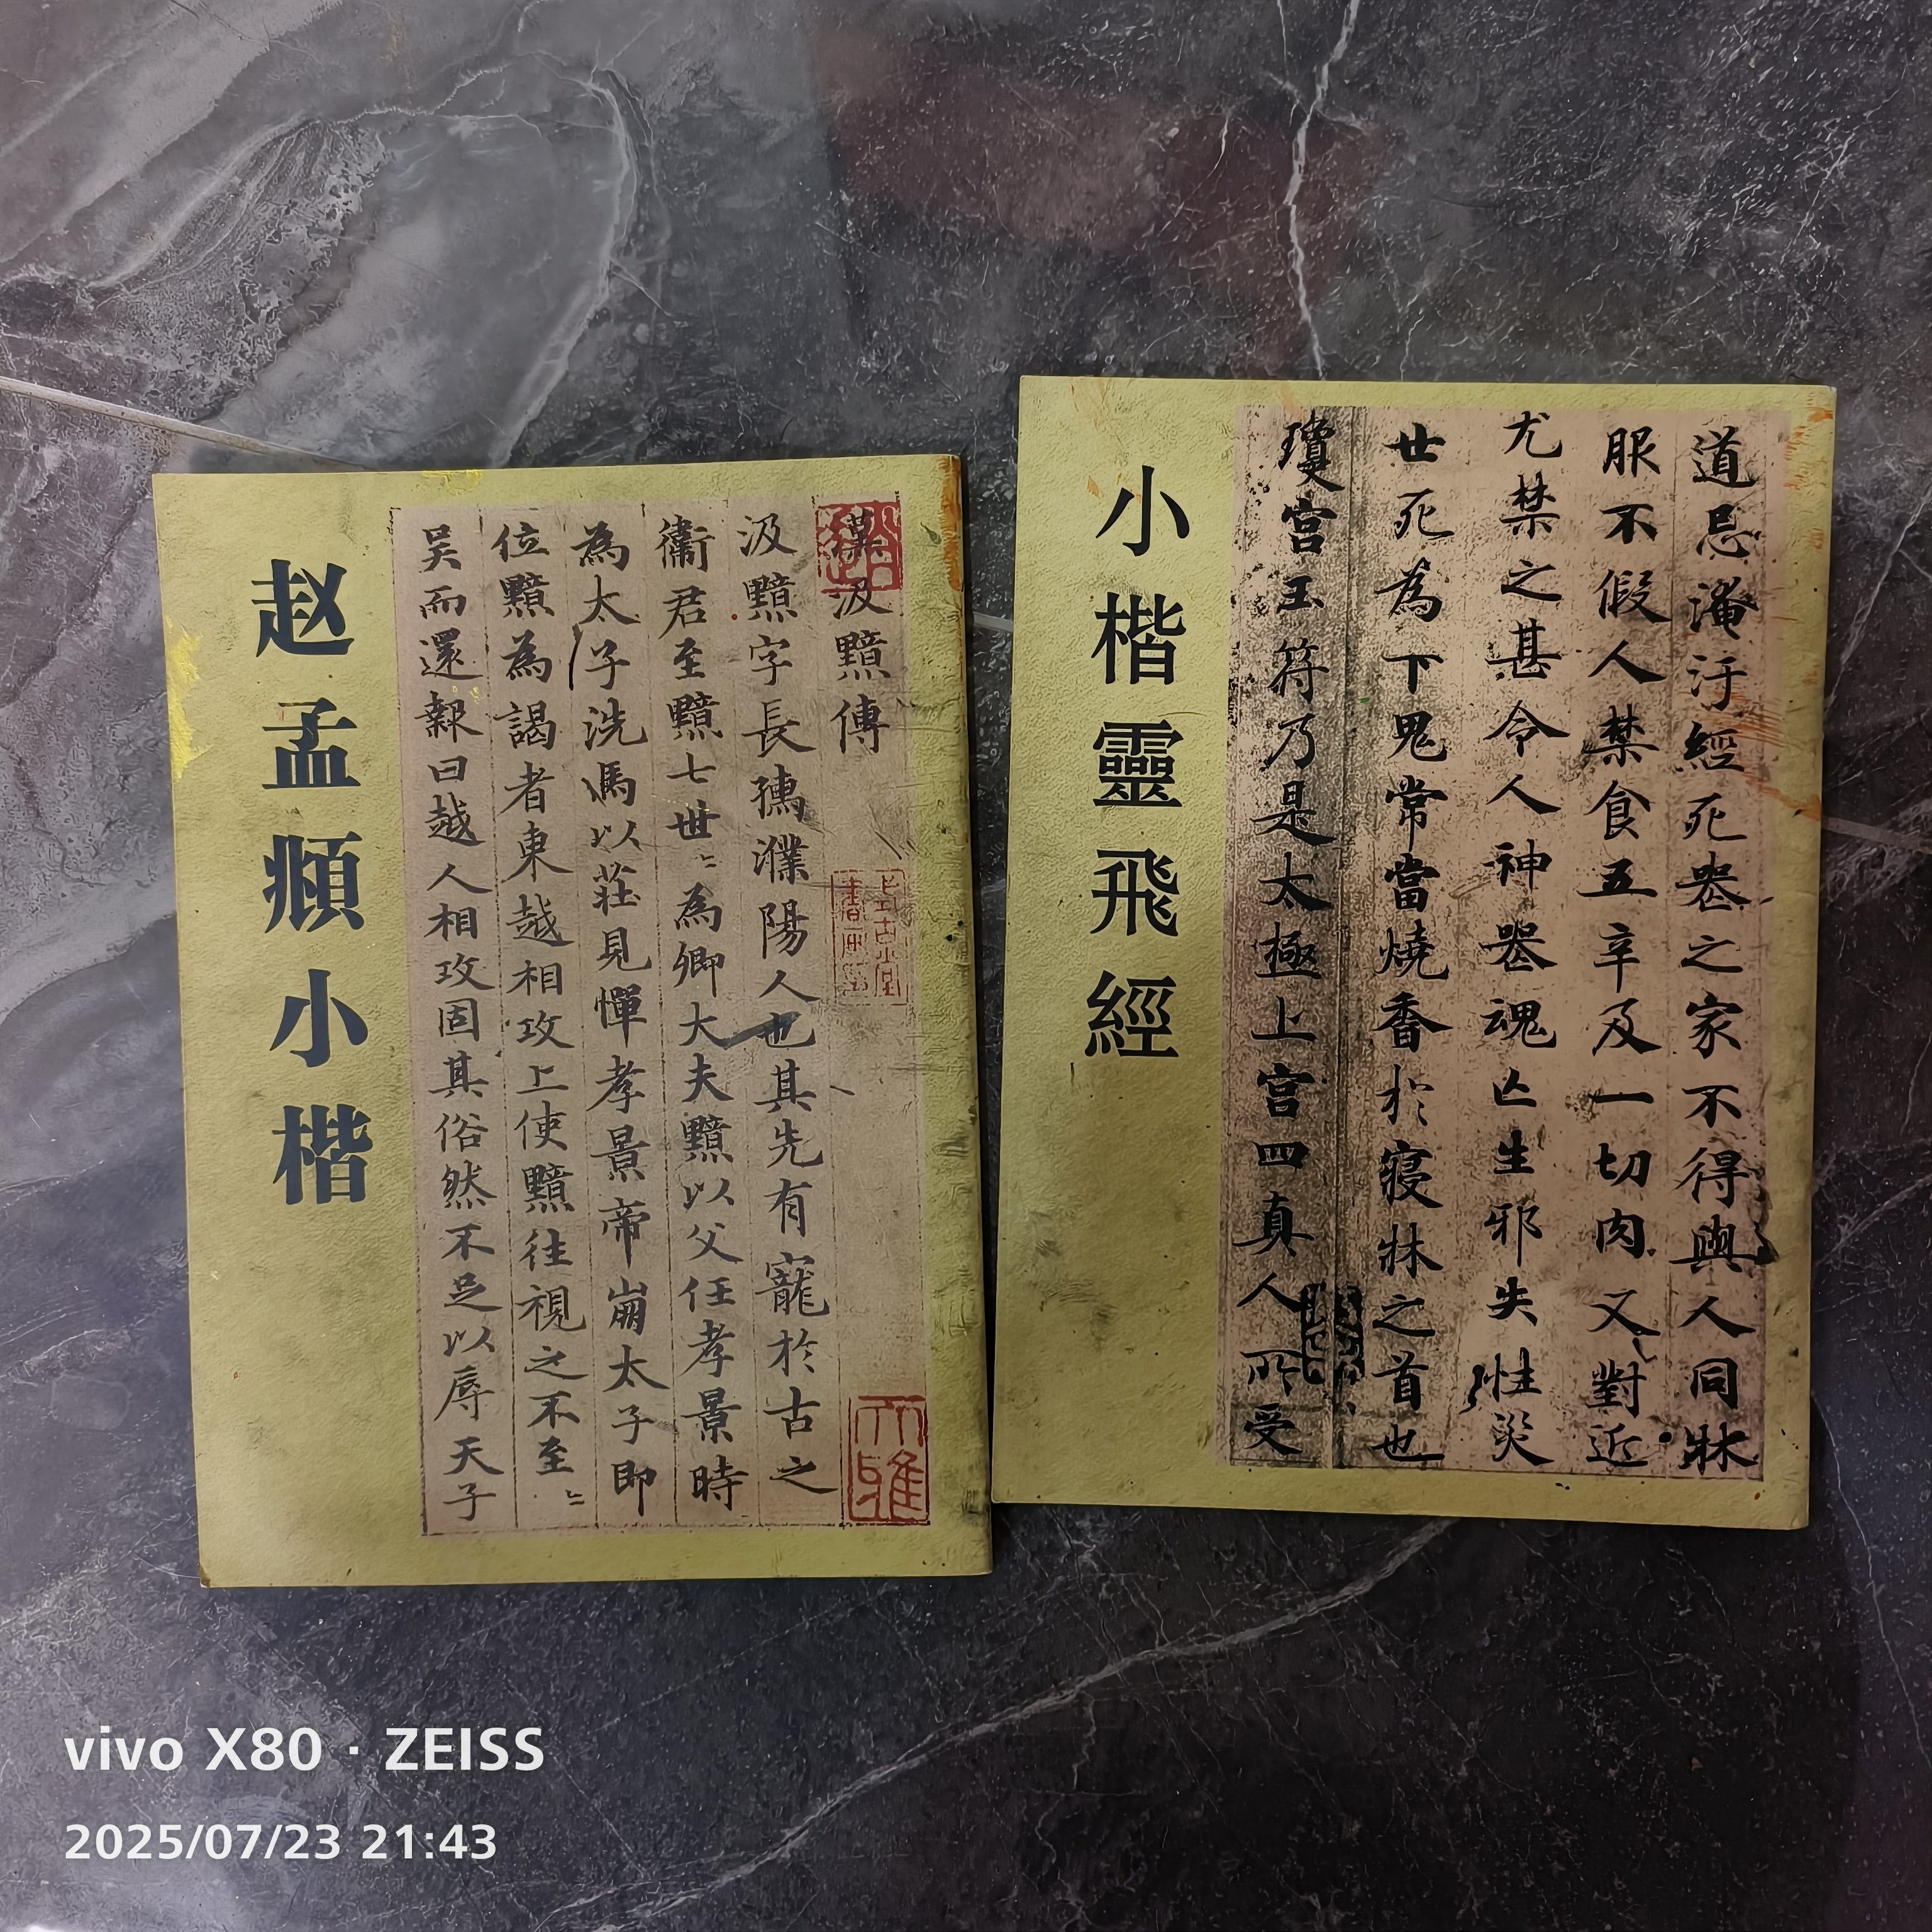 赵孟頫小楷
漢汲黯傳
汲黯字長孺濮陽人也其先有寵於古之
衞君至黯七世〻為卿大夫黯以父任孝景時
為太子洗馬以莊見憚孝景帝崩太子即
位黯為謁者東越相攻上使黯往視之不至〻
吴而還報曰越人相攻固其俗然不足以辱天子
大雅
小楷靈飛經
道忌淹汙經死喪之家不得與人同牀
服不假人禁食五辛及一切肉又對近
尤禁之甚令人神喪魂亡生邪失性災
世死為下鬼常當燒香於寢牀之首也
瓊宫玉符乃是太極上宫四真人所受
vivo X80 · ZEISS
2025/07/23 21:43